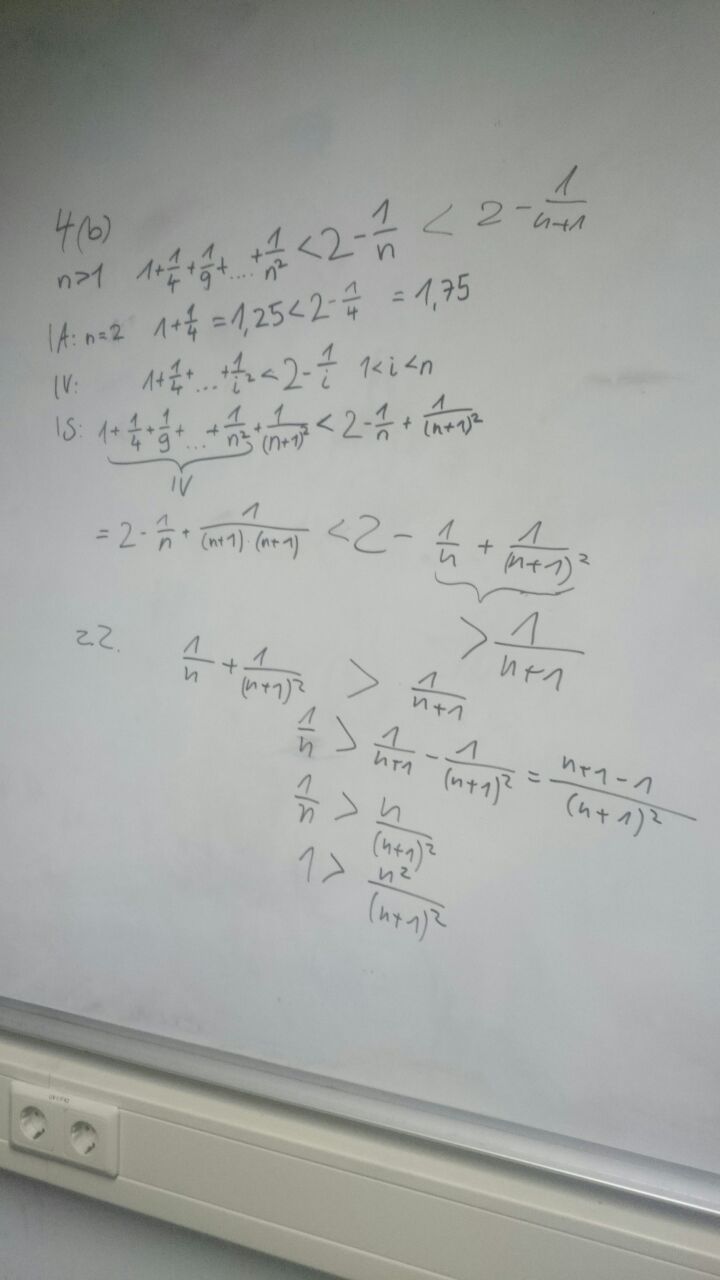 4(b)
n>1 1+1/4+1/9+....+1/n² < 2-1/n < 2-1/(n+1)
IA: n=2 1+1/4 = 1,25 < 2-1/4 = 1,75
IV: 1+1/4+...+1/i² < 2-1/i 1<i<n
IS: 1+1/4+1/9+...+1/n²+1/(n+1)² < 2-1/n+1/(n+1)²
IV
= 2-1/n+1/((n+1)·(n+1)) < 2-1/n+1/(n+1)²
> 1/(n+1)
zz. 1/n+1/(n+1)² > 1/(n+1)
1/n > 1/(n+1)-1/(n+1)² = (n+1-1)/(n+1)²
1/n > n/(n+1)²
1 > n²/(n+1)²